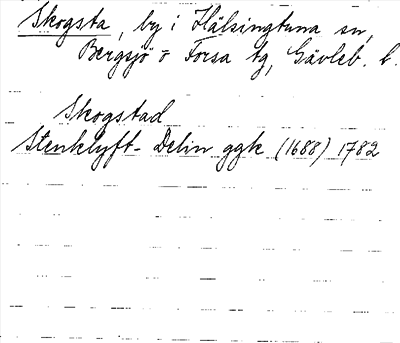 Skogsta, by i Hälsingtuna sn,
Bergsjö o Forsa tg, Gävleb. l.
Skogstad
Stenklyft- Delin ggk (1688) 1782